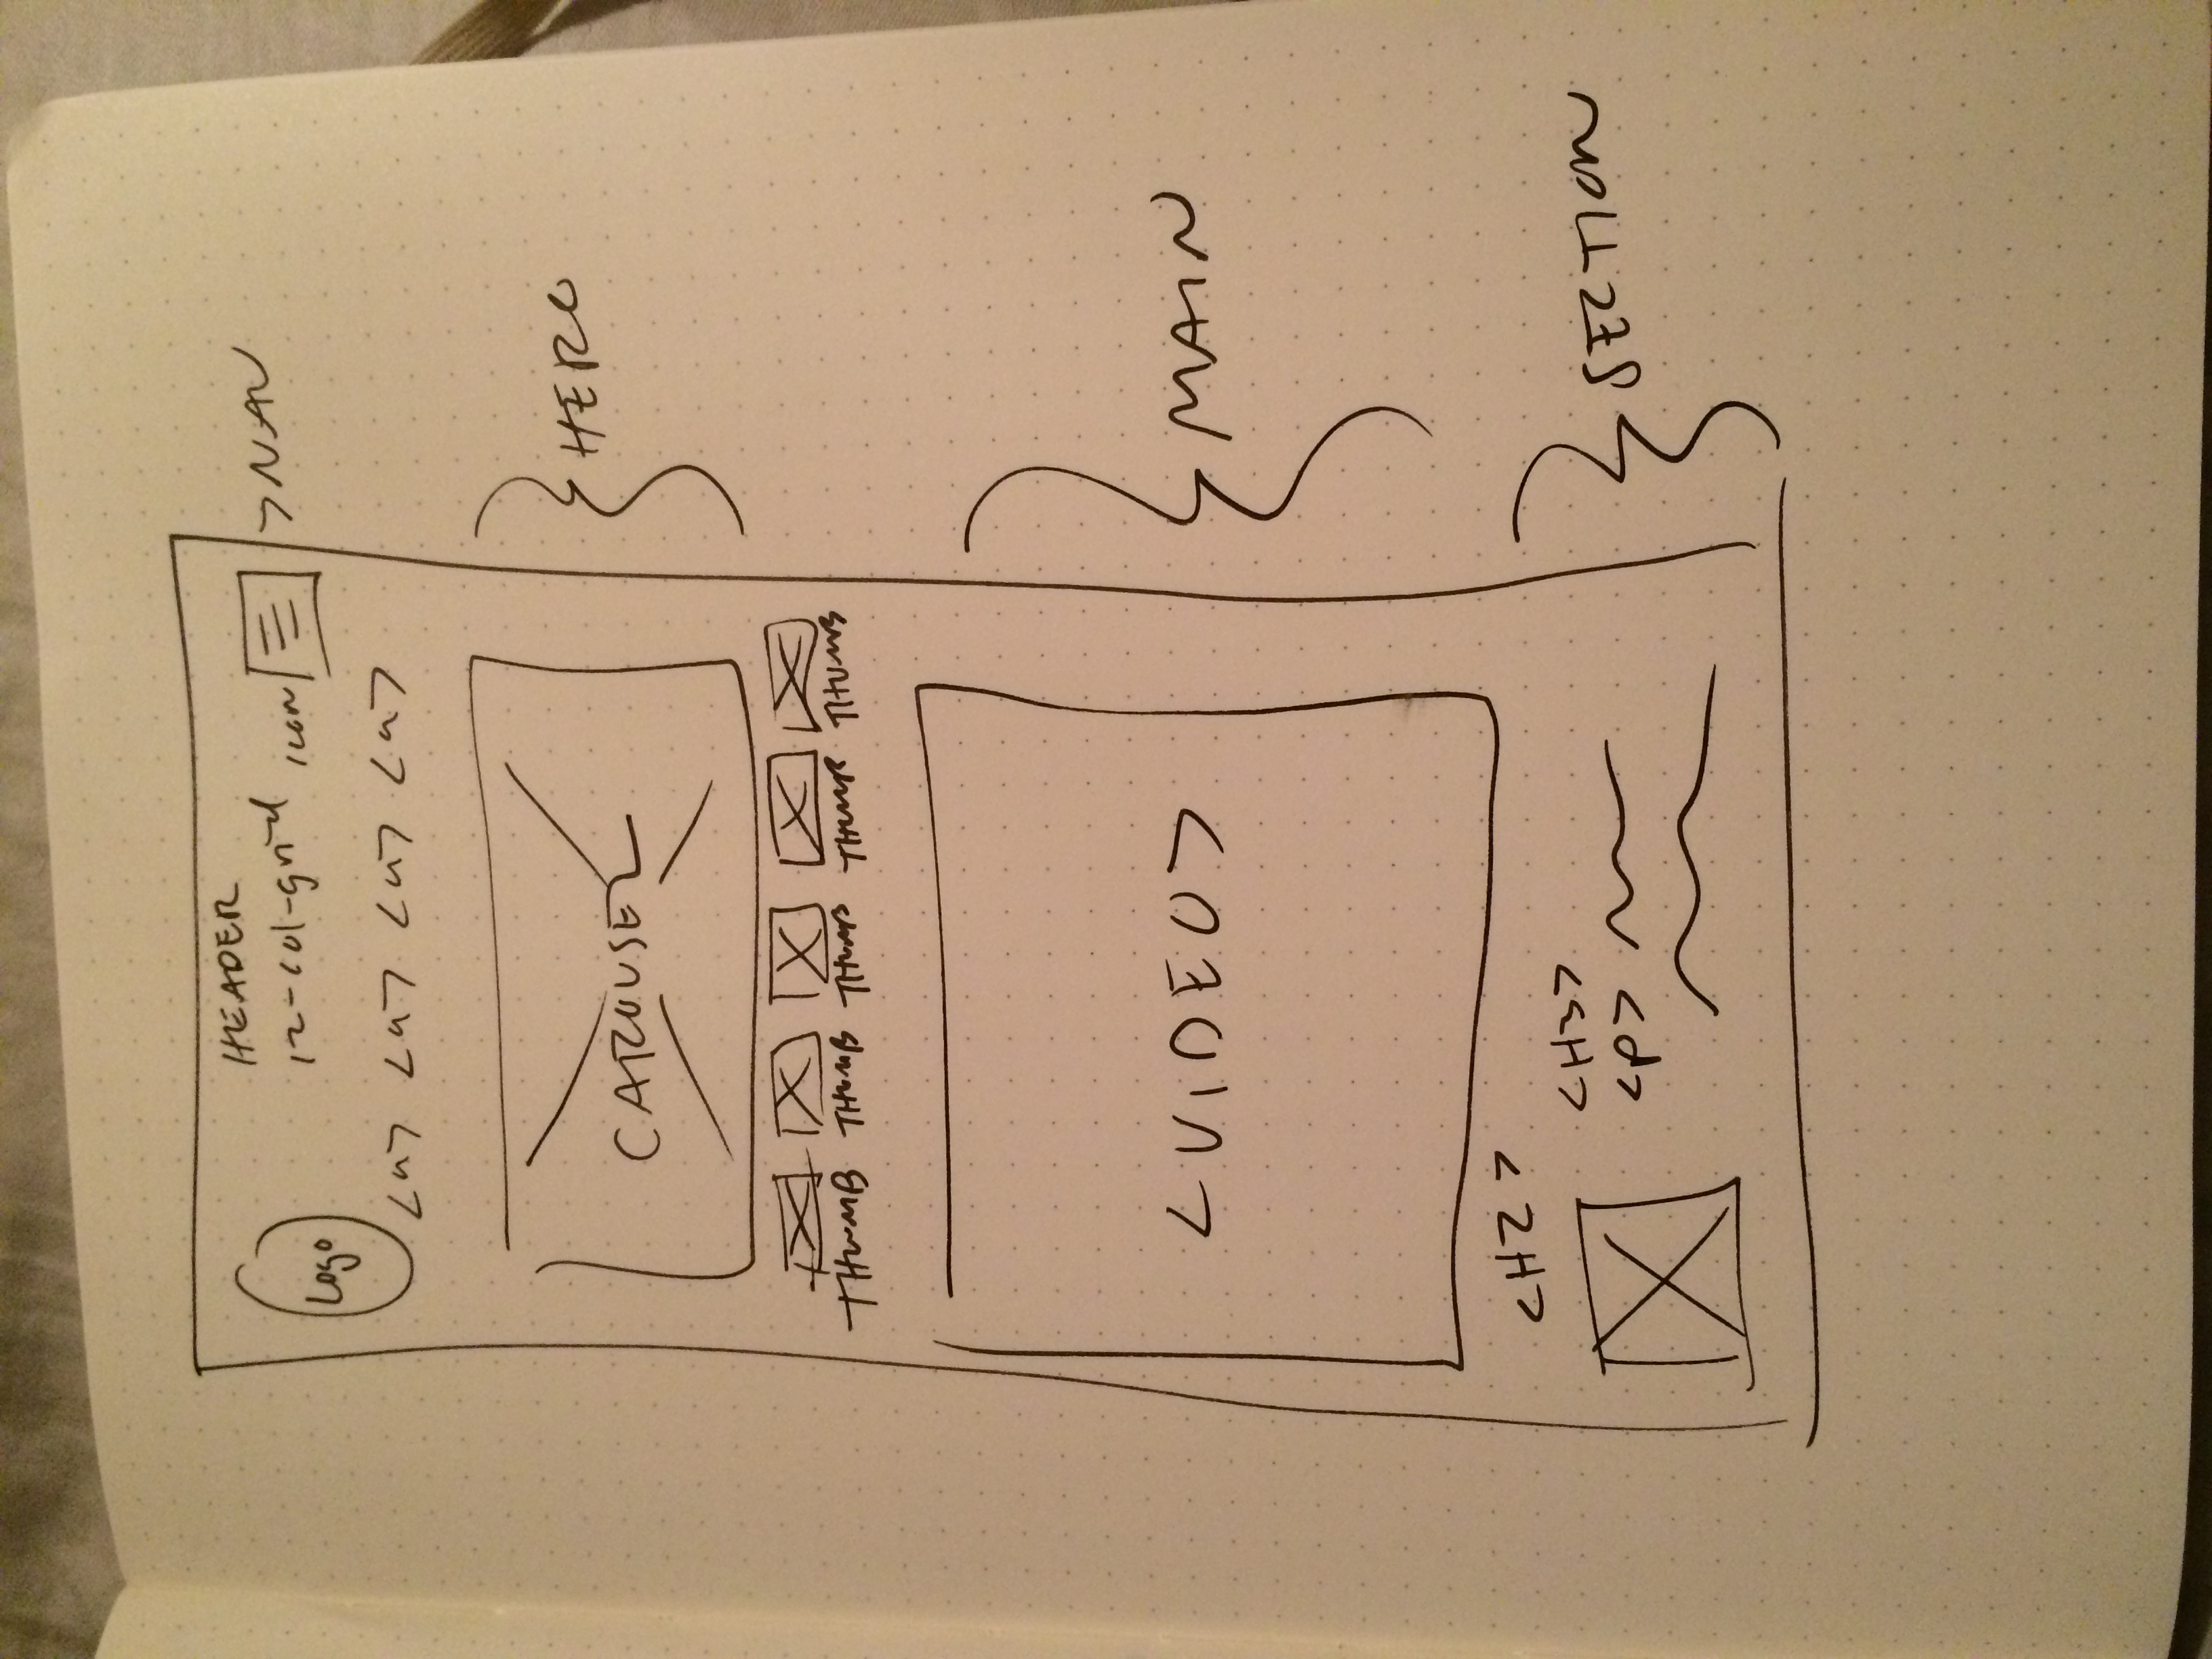 HEADER
12-col-grid
icon
> NAV
Logo
<a> <a> <a> <a>
CAROUSEL
HERO
THUMB THUMB THUMB THUMB THUMB
<VIDEO>
MAIN
<H2>
<H3>
<p>
SECTION